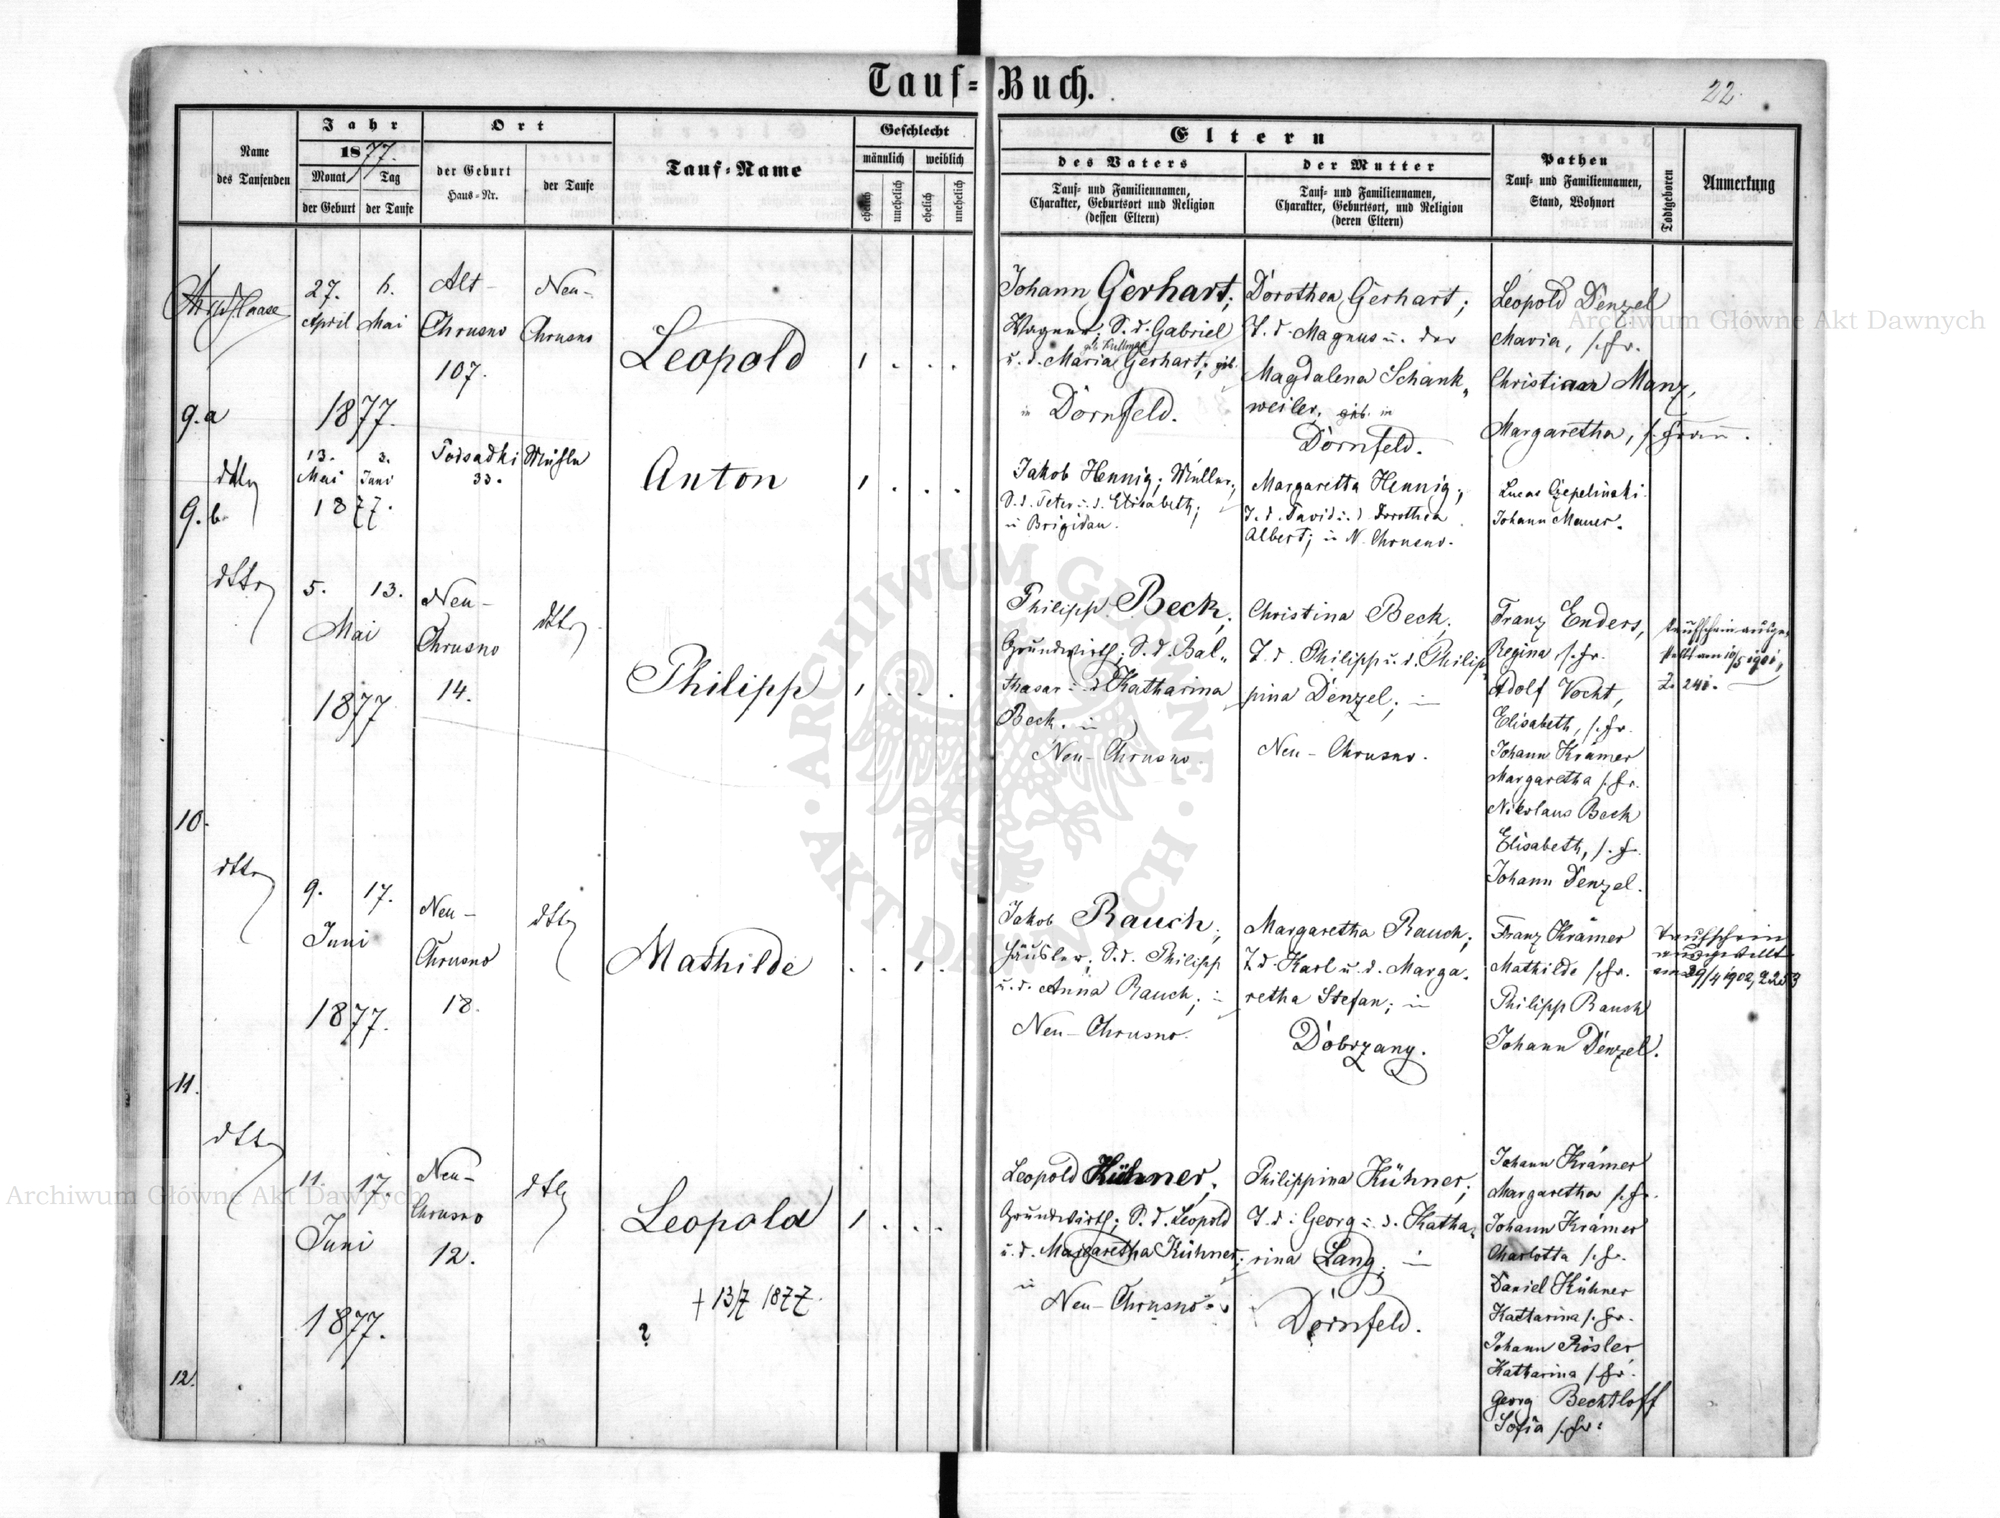 Tauf-Buch.
22.
Name
des Taufenden
Jahr
1877.
Monat Tag
der Geburt der Taufe
Ort
der Geburt
Haus-Nr.
der Taufe
Tauf-Name
Geschlecht
männlich weiblich
ehelich unehelich ehelich unehelich
Eltern
des Vaters
Tauf- und Familiennamen,
Charakter, Geburtsort und Religion
(dessen Eltern)
der Mutter
Tauf- und Familiennamen,
Charakter, Geburtsort, und Religion
(deren Eltern)
Pathen
Tauf- und Familiennamen,
Stand, Wohnort
Todtgeboren
Anmerkung
9.a
27. 6.
April Mai
1877.
Alt-
Chrusno
107.
Neu-
Chrusno
Leopold
1 . . .
Johann Gerhart;
Wagner; S. d. Gabriel
u. d. Maria Gerhart; geb.
in Dornfeld.
Dorothea Gerhart;
T. d. Magnus u. der
Magdalena Schank-
weiler, geb. in
Dornfeld.
Leopold Denzel
Maria, s. Fr.
Christian Manz,
Margaretha, s. Frau.
9.b
dtto
13. 3.
Mai Juni
1877.
Podsadki
33.
Mühle
Anton
1 . . .
Jakob Hennig; Müller;
S. d. Peter u. d. Elisabeth;
in Brigidau.
Margaretta Hennig;
T. d. David u. d. Dorothea
Albert; in N. Chrusno.
Lucas Czepelinski.
Johann Mauer.
dtto
5. 13.
Mai
1877
Neu-
Chrusno
14.
dtto
Philipp
1 . . .
Philipp Beck;
Grundwirth; S. d. Bal-
thasar u. d. Katharina
Beck. in
Neu-Chrusno
Christina Beck;
T. d. Philipp u. d. Philip-
pina Denzel; in
Neu-Chrusno.
Franz Enders,
Regina s. Fr.
Adolf Vocht,
Elisabeth, s. Fr.
Johann Krämer
Margaretha s. Fr.
Nikolaus Beck
Elisabeth, s. Fr.
Johann Denzel.
Taufschein ausge-
stellt am 10/5 1901,
Z. 241.
10.
dtto
9. 17.
Juni
1877.
Neu-
Chrusno
18.
dtto
Mathilde
. . 1 .
Jakob Rauch;
Häusler; S. d. Philipp
u. d. Anna Rauch; in
Neu-Chrusno.
Margaretha Rauch;
T. d. Karl u. d. Marga-
retha Stefan; in
Dobrzany.
Franz Krämer
Mathilde s. Fr.
Philipp Rauch
Johann Denzel.
Taufschein
ausgestellt
am 29/4 1902,
11.
dtto
11. 17.
Juni
1877.
Neu-
Chrusno
12.
dtto
Leopold
+ 13/7 1877.
?
1 . . .
Leopold Kühner;
Grundwirth; S. d. Leopold
u. d. Margaretha Kühner;
in
Neu-Chrusno.
Philippina Kühner;
T. d. Georg u. d. Katha-
rina Lang; in
Dornfeld.
Johann Krämer
Margaretha s. Fr.
Johann Krämer
Charlotta s. Fr.
Daniel Kühner
Katharina s. Fr.
Johann Rösler
Katharina s. Fr.
Georg Bechtloff
Sofia s. Fr.
12.
Archiwum Główne Akt Dawnych
Archiwum Główne Akt Dawnych
ARCHIWUM GŁÓWNE AKT DAWNYCH